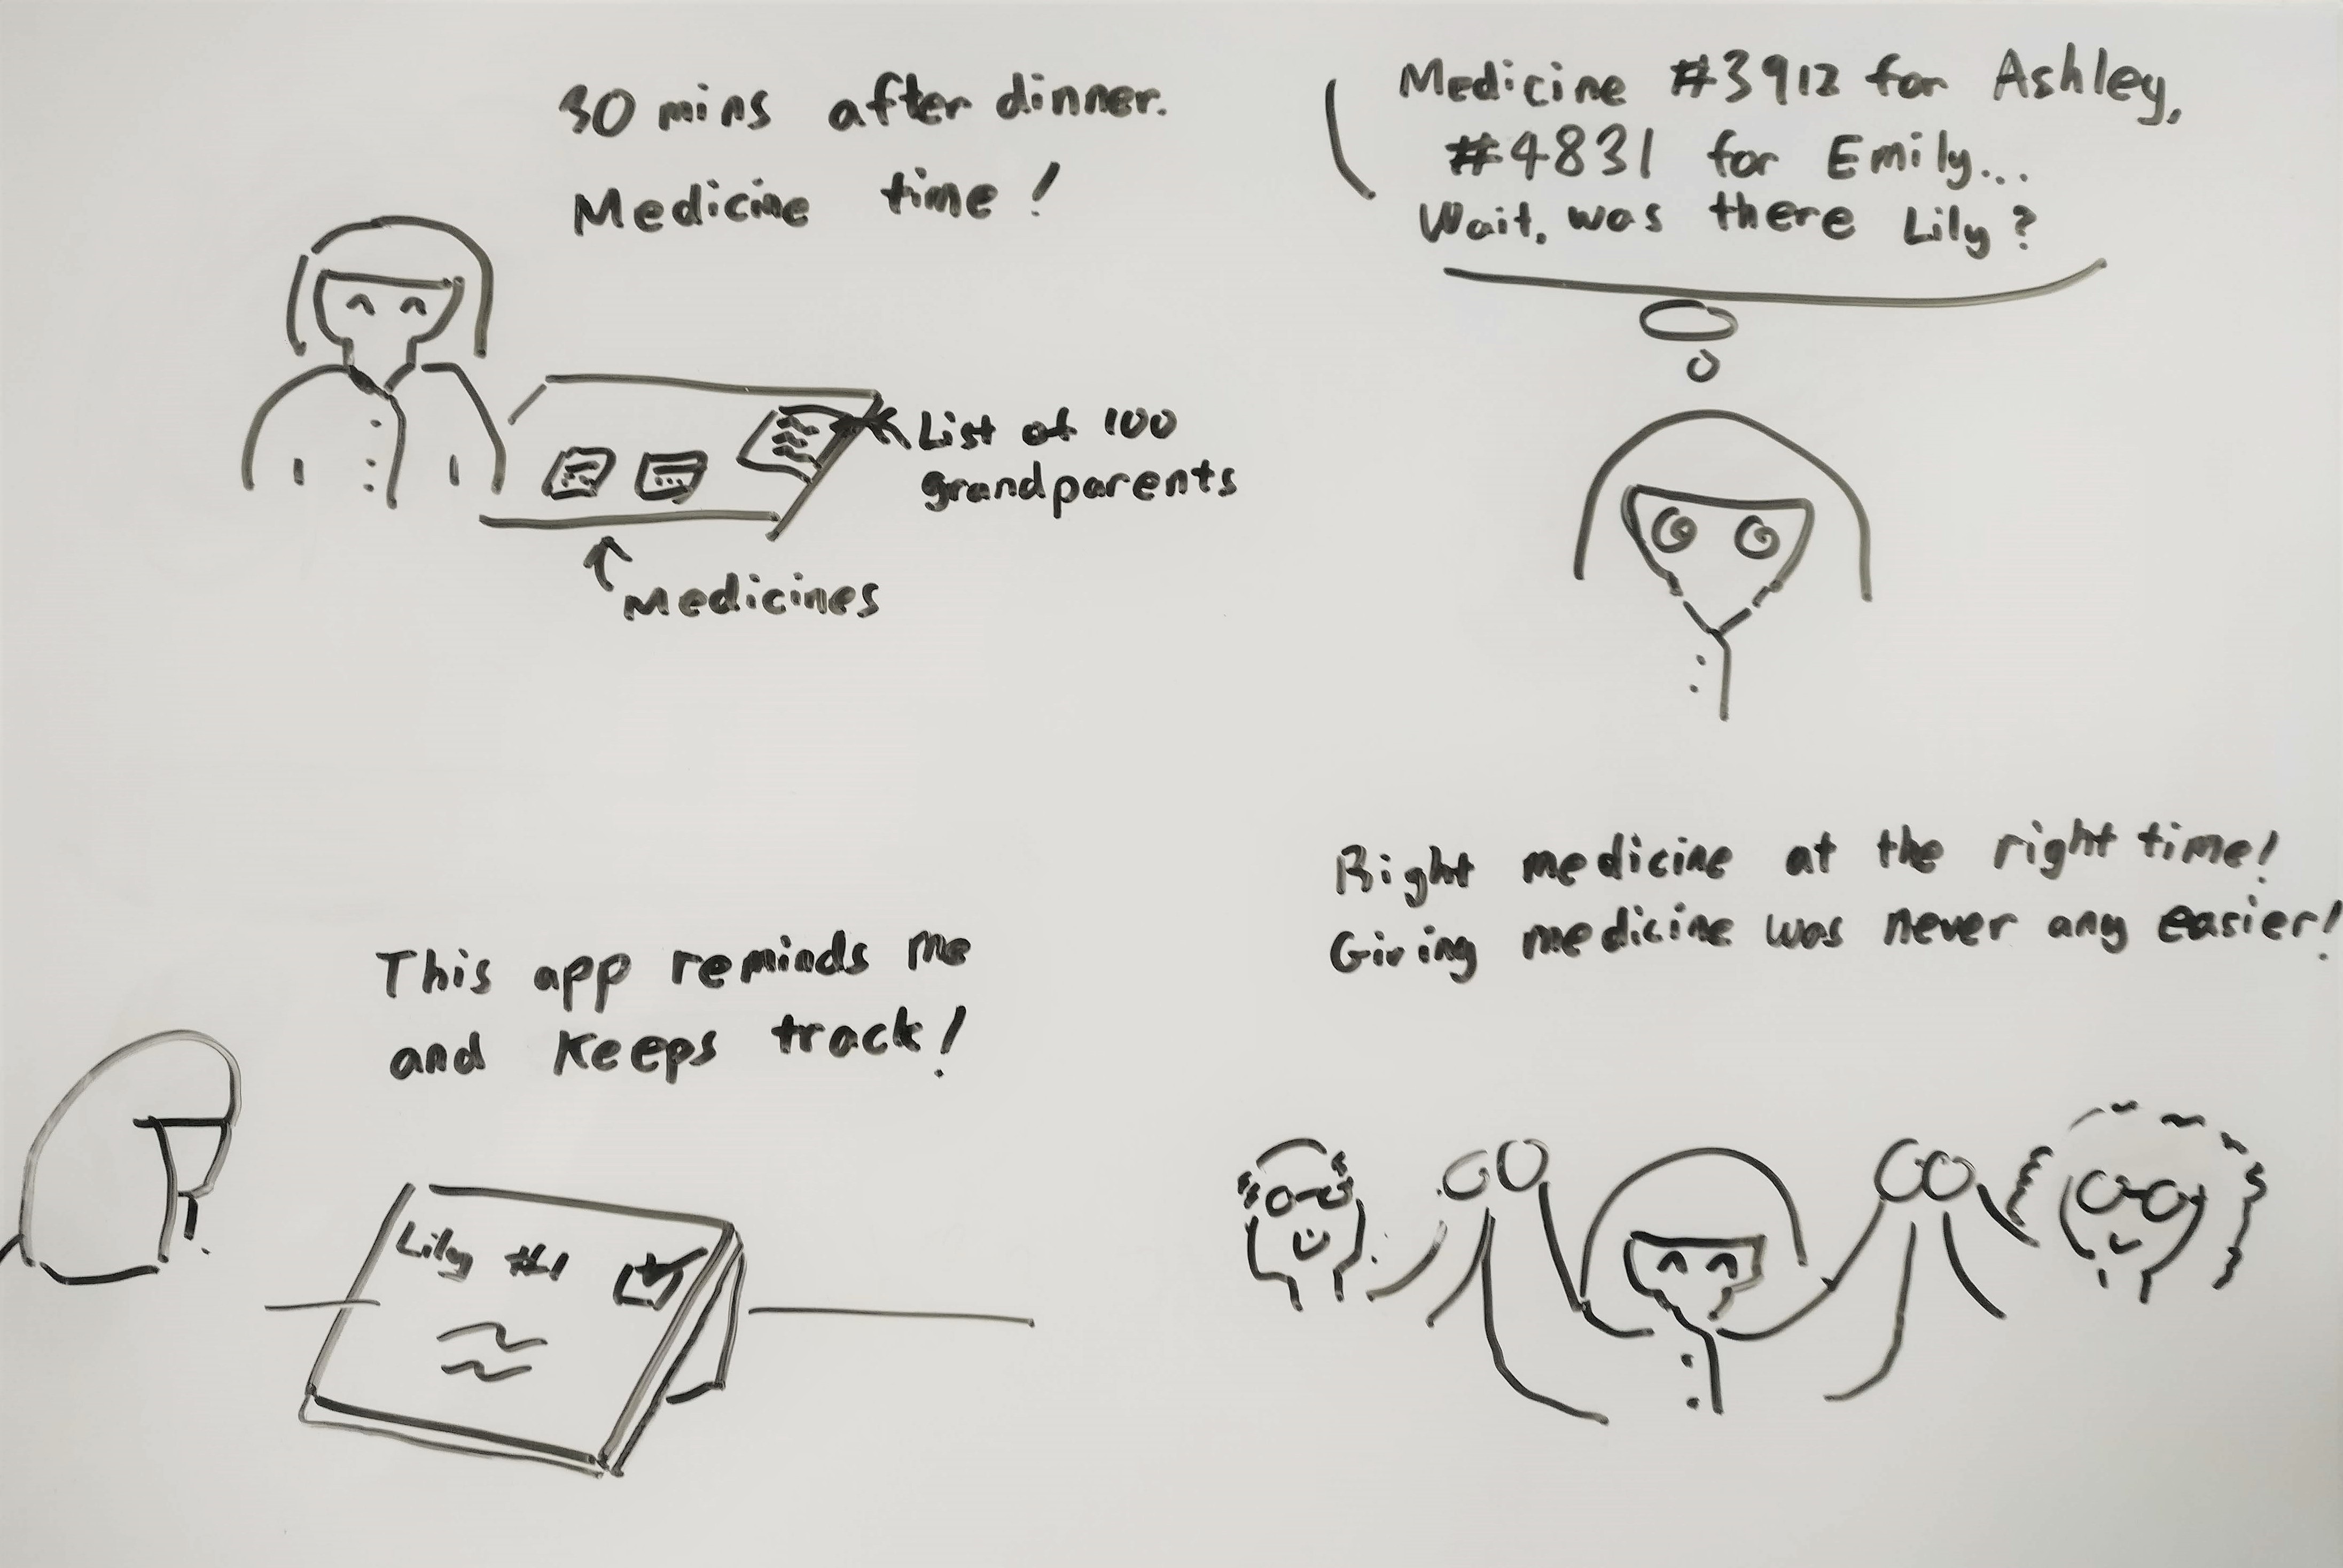 30 mins after dinner.
Medicine time!
List of 100
grandparents
Medicines
Medicine #3912 for Ashley,
#4831 for Emily...
Wait, was there Lily?
This app reminds me
and keeps track!
Lily #1
Right medicine at the right time!
Giving medicine was never any easier!